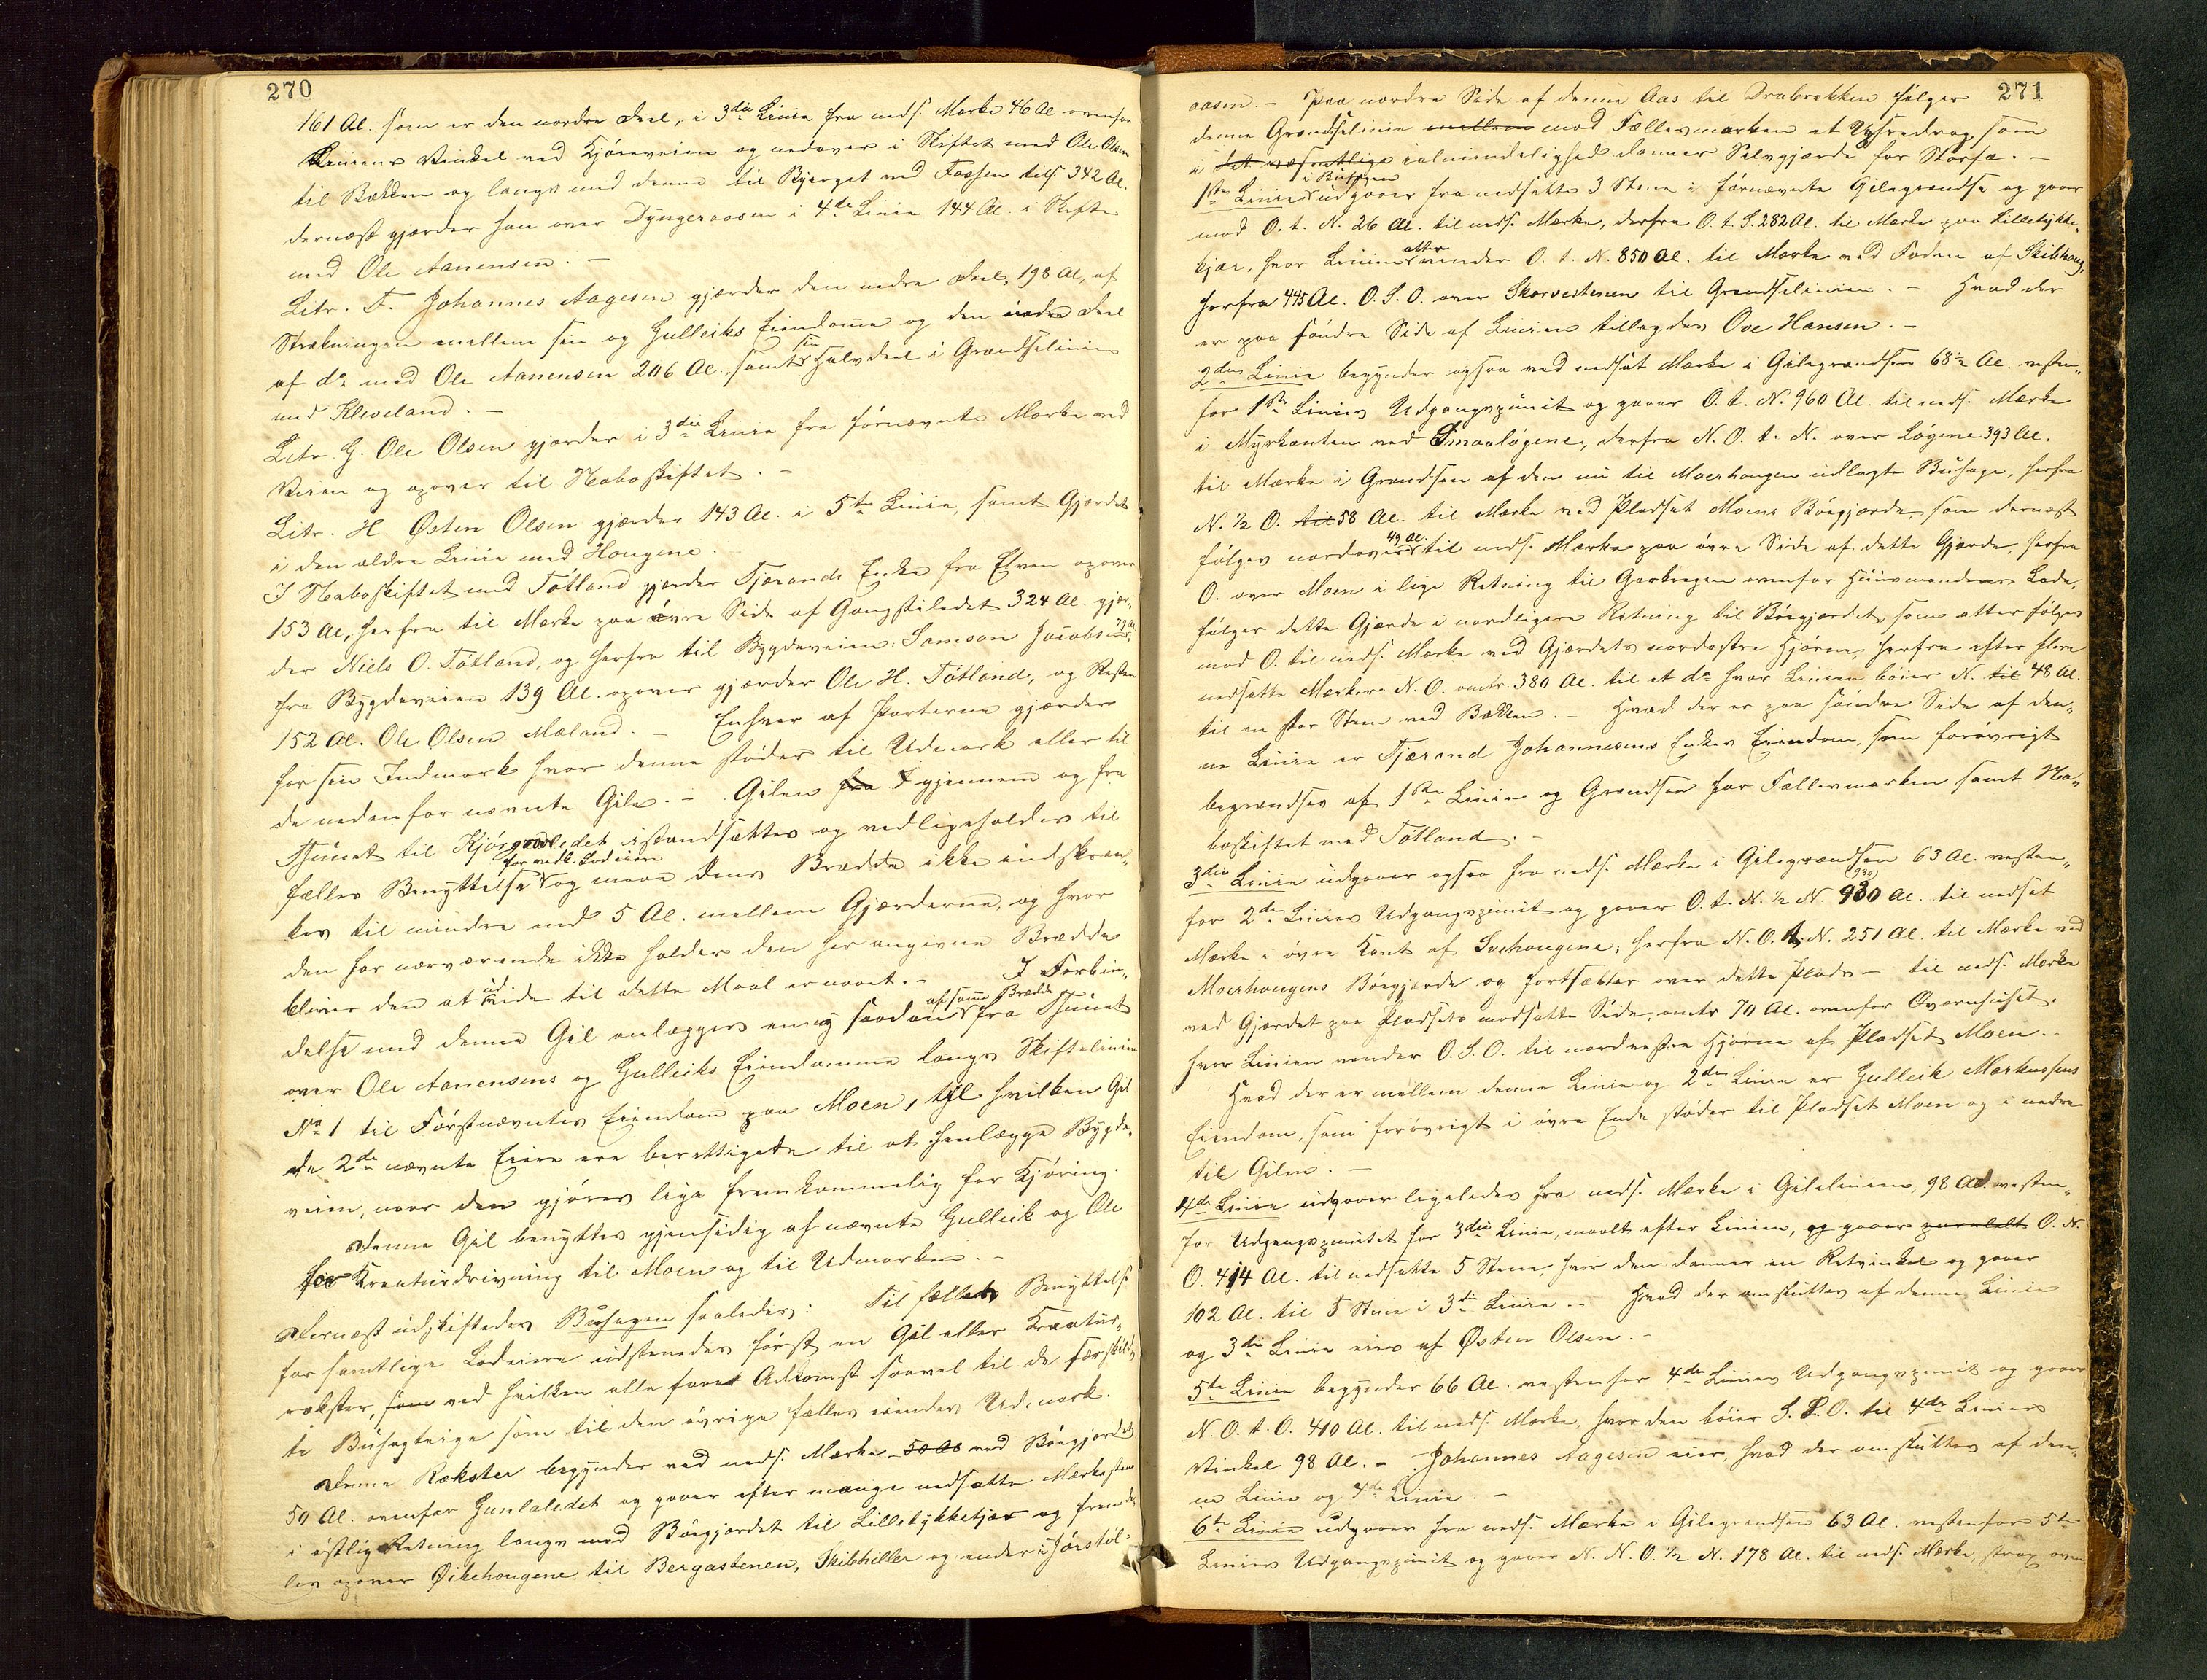 270
161 Al. som er den nordre Deel, i 3die Linie fra neds. Mærke 46 Al ovenfor
Liniens Vinkel ved Kjøreveien og nedover i Skiftet med Ole Olsen
til Bækken og langs med denne til Bjerget ved Fossen tils 342 Al.
dernæst gjærder han over Dyngeraasen i 4de Linie 144 Al. i Skifte
med Ole Aanensen. —
Litr. F. Johannes Aagesen gjærder den nedre Deel, 198 Al, af
Strækningen mellem sin og Gulleiks Eiendomme og den indre Deel
af do med Ole Aanensen 206 Al. samt sin Halvdeel i Grændselinien
med Kleveland. —
Litr. G. Ole Olsen gjærder i 3die Linie fra førnævnte Mærke ved
Veien og opover til Naboskiftet. —
Litr. H. Østen Olsen gjærder 143 Al. i 5te Linie, samt Gjærdet
i den ældre Linie med Hougene.
I Naboskiftet med Tótland gjærder Tjærands Enke fra Elven opover
153 Al, herfra til Mærke paa øvre Side af Gangstiledet 324 Al. gjær-
der Niels O. Tótland, og herfra til Bygdeveien: Samson Jacobsen, 79 Al
fra Bygdeveien 139 Al. opover gjærder Ole H. Tótland, og Resten
152 Al. Ole Olsen Mæland. — Enhver af Parterne gjærder
for sin Indmark hvor denne støder til Udmark eller til
de nedenfor nævnte Gile. — Gilen fra gjennem og fra
Thunet til Kjørereledet istandsættes og vedligeholdes til
fælles Benyttelse for vedk. Lodeiere og maae dens Brædde ikke indskræn-
kes til mindre end 5 Al. mellem Gjærderne, og hvor
den for nærværende ikke holder den her angivne Brædde
bliver den at udvide til dette Maal ernævnt. — I Forbin-
delse med denne Gil anlægges en ny saadan af samme Brædde fra Thunet
over Ole Aanensens og Gulleiks Eiendomme langs Skiftelinien
No 1 til Førstnævntes Eiendom paa Moen, til hvilken Gil
de 2de nævnte Eiere ere berettigede til at henlægge Bygde-
veien, naar den gjøres lige fremkommelig for Kjøring.
Denne Gil benyttes gjensidig af nævnte Gulleik og Ole
for Kreaturdrivning til Moen og til Udmarken. —
Dernæst udskiftedes Buhagen saaledes: Til fælles Benyttelse
for samtlige Lodeiere udstenedes først en Gil eller Kreatur-
rækster, som ved hvilken alle faaer Adkomst saavel til de særskil-
te Buhagteige som til den øvrige fælles eiendes Udmark.
Denne Rækster begynder ved neds. Mærke 50 Al ved Bøegjærdet
50 Al. ovenfor Gunlaledet og gaaer efter mange nedsatte Mærkestene
i østlig Retning langs med Bøegjærdet til Lilletykketjær og frem
les opover Øikehougene til Bergastenen, Skibhiller og ender i Hørstøl-
271
aasen. — Paa nordre Side af denne Aas til Drabrekken følger
denne Grændselinie mellem mod Fællesmarken et Ufsredrag, som
i det væsentlige i almindelighed danner Selvgjærde for Storfæ. —
1ste Linie i Buhagen udgaaer fra nedsatte 3 Stene i førnævnte Gilegrændse og gaaer
mod O. t. N. 26 Al. til neds. Mærke, derfra O. t. S. 282 Al. til Mærke paa Lilletykke-
kjær, hvor Linien atter vender O. t. N. 850 Al. til Mærke ved Foden af Skibhoug,
herfra 445 Al. O. S. O. over Skorvestenen til Grændselinien. — Hvad der
er paa søndre Side af Linien tillægges Ove Hansen. —
2den Linie begynder ogsaa ved nedsat Mærke i Gilegrændsen 68½ Al. vesten-
for 1ste Linies Udgangspunit og gaaer O. t. N. 960 Al. til neds. Mærke
i Myrkanten ved Smaaløgene, derfra N. O. t. N. over Løgene 393 Al.
til Mærke i Grændsen af den nu til Moerhougen udlagte Buhage, herfra
N. ½ O. til 58 Al. til Mærke ved Pladset Moens Bøegjærde, som dernæst
følges nordover 49 Al. til neds. Mærke paa øvre Side af dette Gjærde, herfra
O. over Moen i lige Retning til Garbregen ovenfor Huusmandens Lade,
følger dette Gjærde i nordligere Retning til Bøegjærdet, som atter følges
mod O. til neds. Mærke ved Gjærdets nordøstre Hjørne, herfra efter flere
nedsatte Mærker N. O. omtr. 380 Al. til et do hvor Linien bøier N. til 48 Al.
til en stor Steen ved Bækken. — Hvad der er paa søndre Side af den-
ne Linie er Tjærand Johannesens Enkes Eiendom, som forøvrigt
begrændses af 1ste Linie og Grændsen for Fællesmarken samt Na-
boskiftet med Tótland. —
3die Linie udgaaer ogsaa fra neds. Mærke i Gilegrændsen 63 Al. vesten-
for 2den Linies Udgangspunit og gaaer O. t. N. ½ N. 930 (930) Al. til nedsat
Mærke i øvre Kant af Svehougene, herfra N. O. t. N. 251 Al. til Mærke ved
Moerhougens Bøegjærde og fortsætter over dette Plads — til neds. Mærke
ved Gjærdet paa Pladsets modsatte Side, omtr 70 Al. ovenfor Qvernhuset,
hvor Linien vender O. S. O. til nordvestre Hjørne af Pladset Moen. —
Hvad der er mellem denne Linie og 2den Linie er Gulleik Markussens
Eiendom, som forøvrigt i øvre Ende støder til Pladset Moen og i nedre
til Gilen. —
4de Linie udgaaer ligeledes fra neds. Mærke i Gilelinien, 98 Al. vesten-
for Udgangspunitet for 3die Linie, maalt efter Linien, og gaaer paralelt O. N.
O. 414 Al. til nedsatte 5 Stene, hvor den danner en Retvinkel og gaaer
102 Al. til 5 Stene i 3die Linie. — Hvad der omsluttes af denne Linie
og 3die Linie eies af Østen Olsen. —
5te Linie begynder 66 Al. vestenfor 4de Linies Udgangspunit og gaaer
N. O. t. O. 410 Al. til neds. Mærke, hvor den bøier S. S. O. til 4de Linies
Vinkel 98 Al. — Johannes Aagesen eier, hvad der omsluttes af den-
ne Linie og 4de Linie. —
6te Linie udgaaer fra neds. Mærke i Gilegrændsen 63 Al. vestenfor 5te
Linies Udgangspunit og gaaer N. N. O. ½ N. 178 Al. til neds. Mærke strax oven